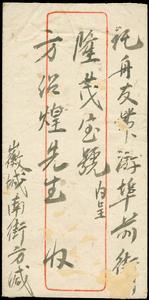 託舟友帶上游埠前街
隆茂宝號內呈
方裕煌先生 收
徽城南街方減